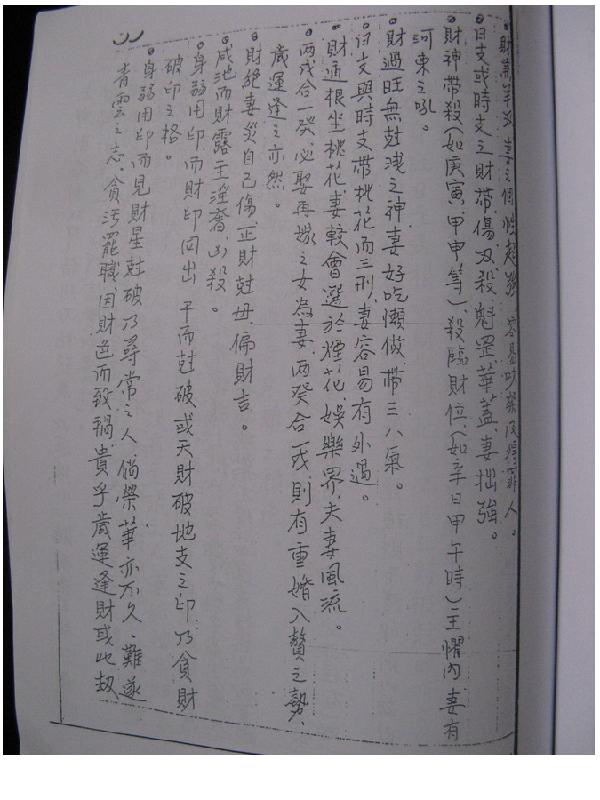 財帶羊刃妻之個性超強 容易吵架及得罪人。
日支或時支之財帶傷刃殺魁罡華蓋妻拙強。
財神帶殺（如庚寅、甲申等）、殺臨財位、（如辛日甲午時）主懼內妻有
河東之吼。
財過旺無尅洩之神妻好吃懶做、帶三八氣。
日支與時支帶桃花而三刑、妻容易有外遇。
財通根坐桃花、妻較會選於煙花、娛樂界、夫妻風流。
兩戊合一癸、必娶再嫁之女為妻、兩癸合一戊、則有重婚入贅之勢、
歲運逢之亦然。
財絕妻災自己傷、正財尅母、偏財吉。
咸池而財露主淫奔、凶殺。
身弱用印而財印同出 干而尅破、或天財破地支之印乃貪財
破印之格。
身弱用印而見財星尅破乃尋常之人、倘榮華亦不久、難遂
青雲之志、貪污罷職、因財色而致禍、貴乎歲運逢財或比劫